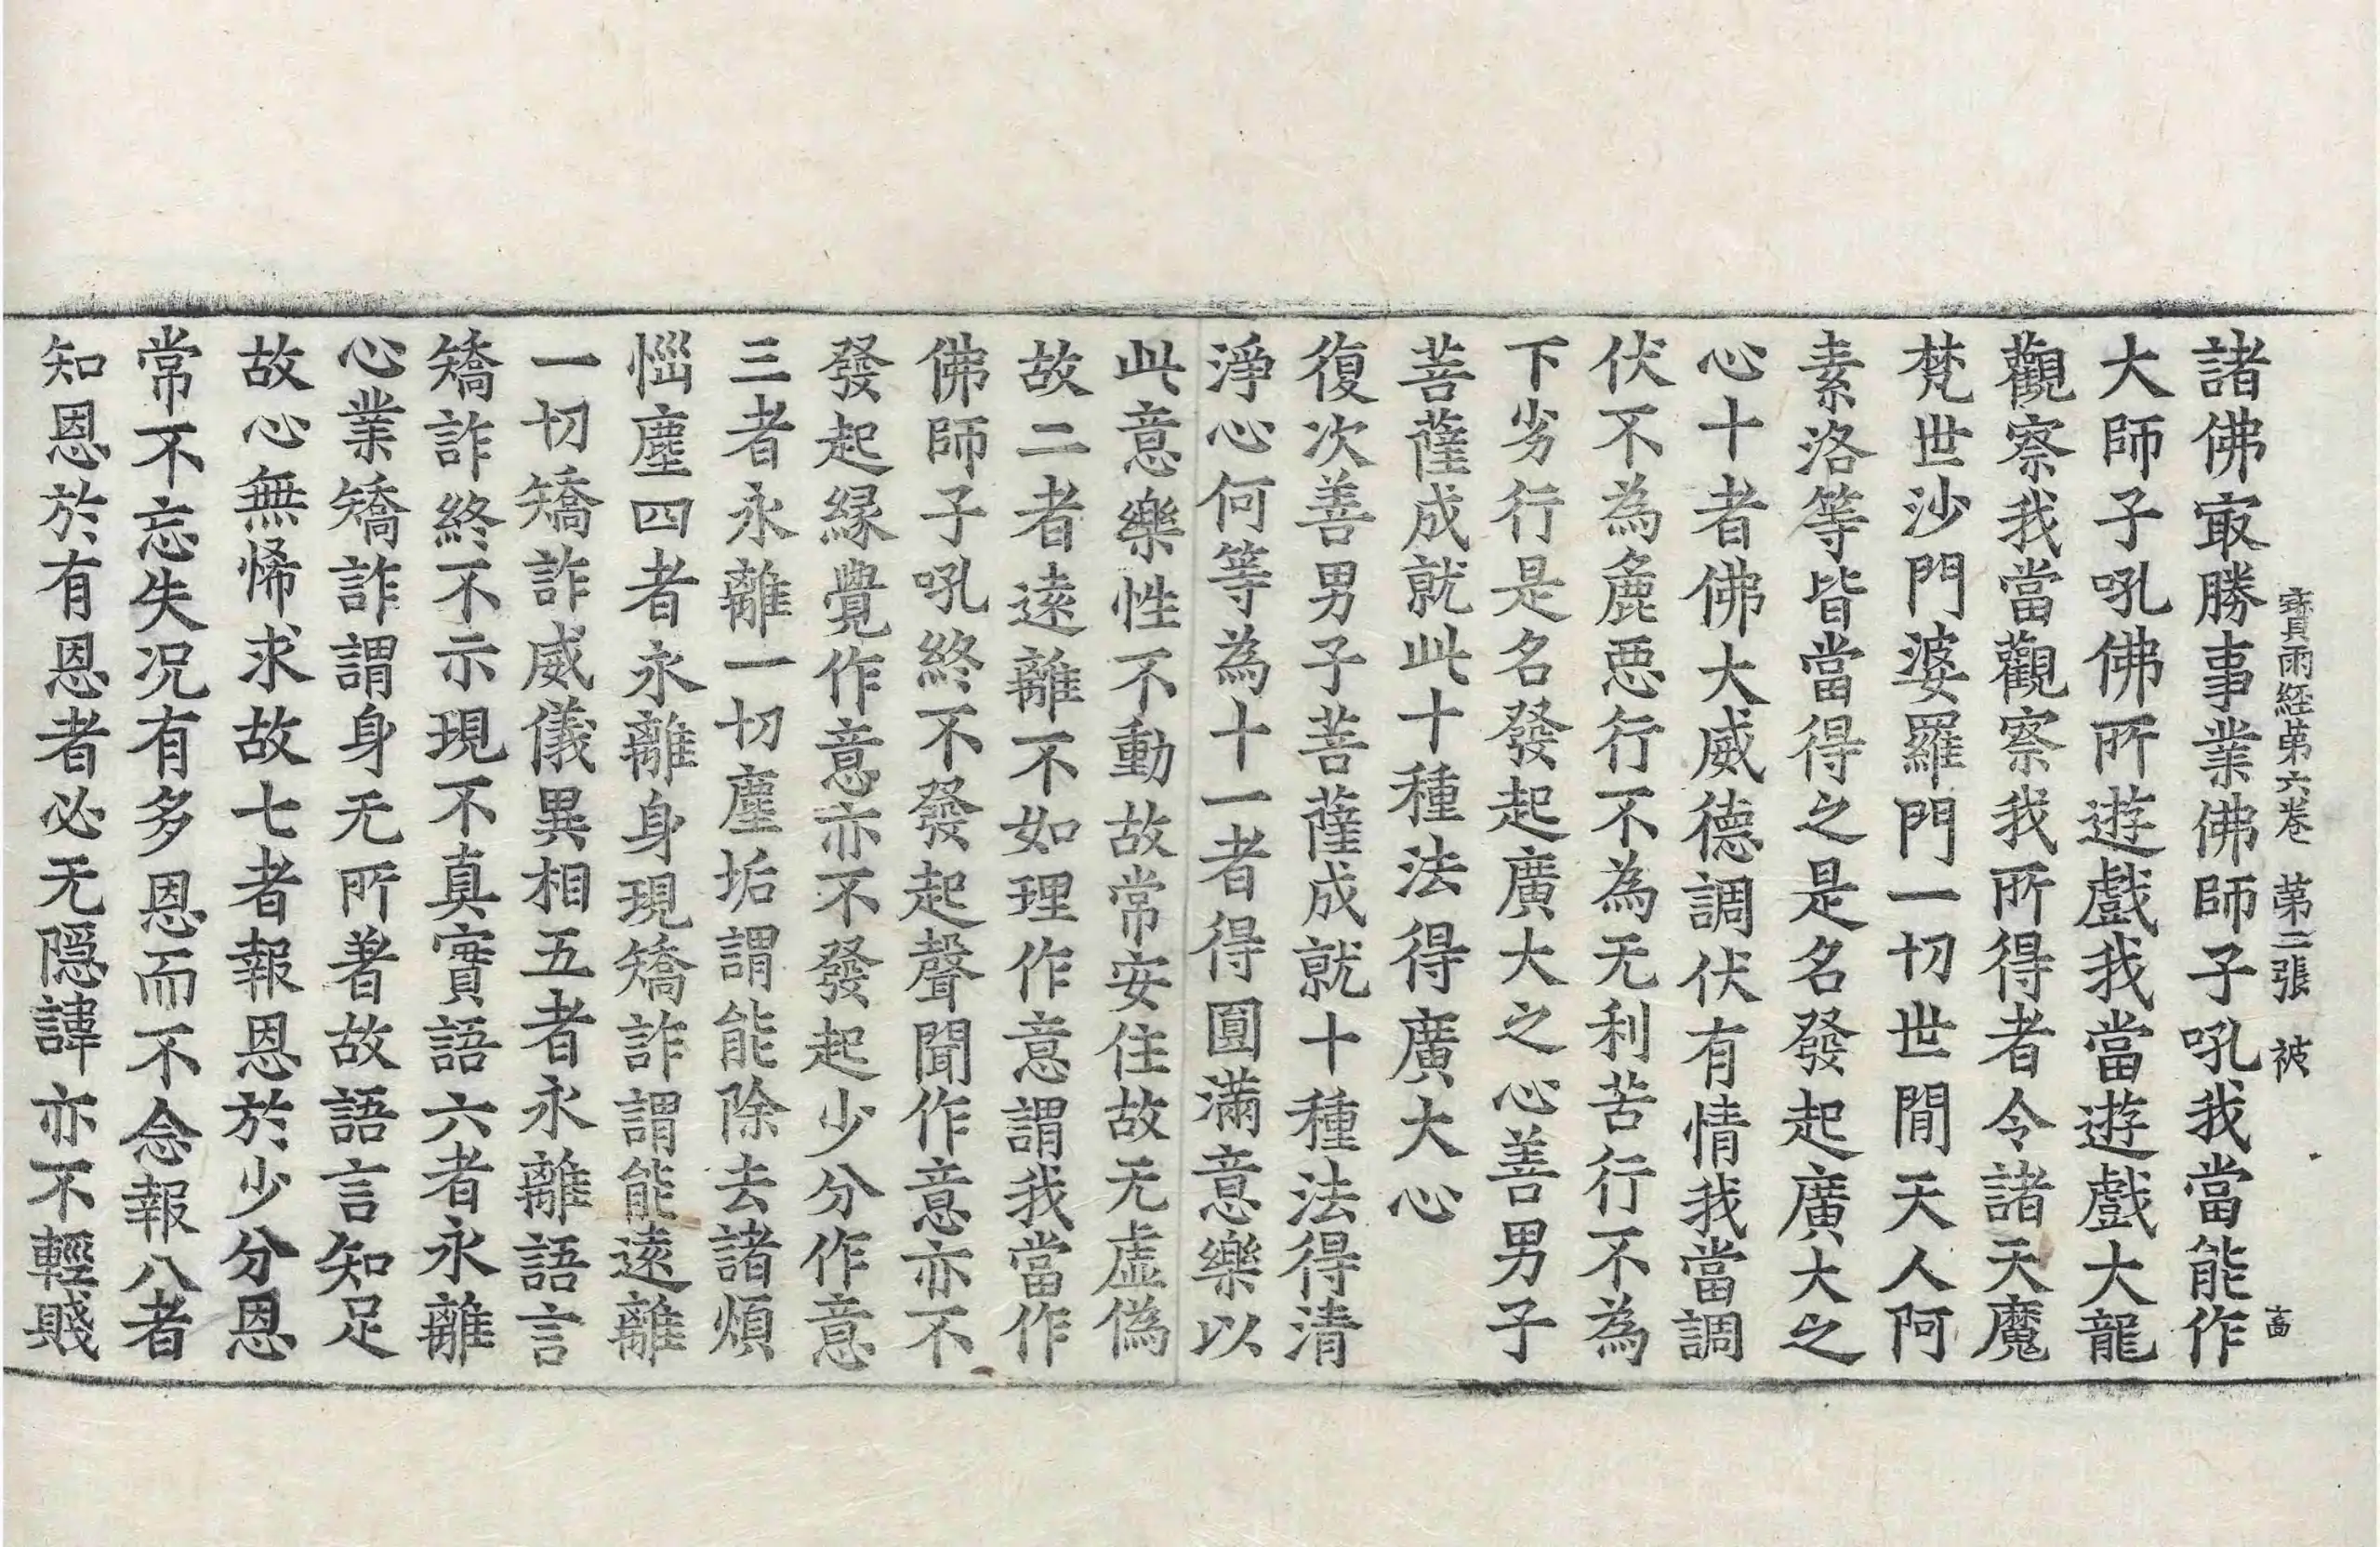 寳雨経第六卷 第二張 被
諸佛㝡勝事業佛師子吼我當能作
大師子吼佛所遊戲我當遊戲大龍
觀察我當觀察我所得者令諸天魔
梵世沙門婆羅門一切世間天人阿
素洛等皆當得之是名發起廣大之
心十者佛大威德調伏有情我當調
伏不為麁惡行不為无利苦行不為
下劣行是名發起廣大之心善男子
菩薩成就此十種法得廣大心
復次善男子菩薩成就十種法得清
淨心何等為十一者得圓滿意樂以
此意樂性不動故常安住故无虛偽
故二者遠離不如理作意謂我當作
佛師子吼終不發起聲聞作意亦不
發起緣覺作意亦不發起少分作意
三者永離一切塵垢謂能除去諸煩
惱塵四者永離身現矯詐謂能遠離
一切矯詐威儀異相五者永離語言
矯詐終不示現不真實語六者永離
心業矯詐謂身无所著故語言知足
故心無悕求故七者報恩於少分恩
常不忘失况有多恩而不念報八者
知恩於有恩者必无隱諱亦不輕賤